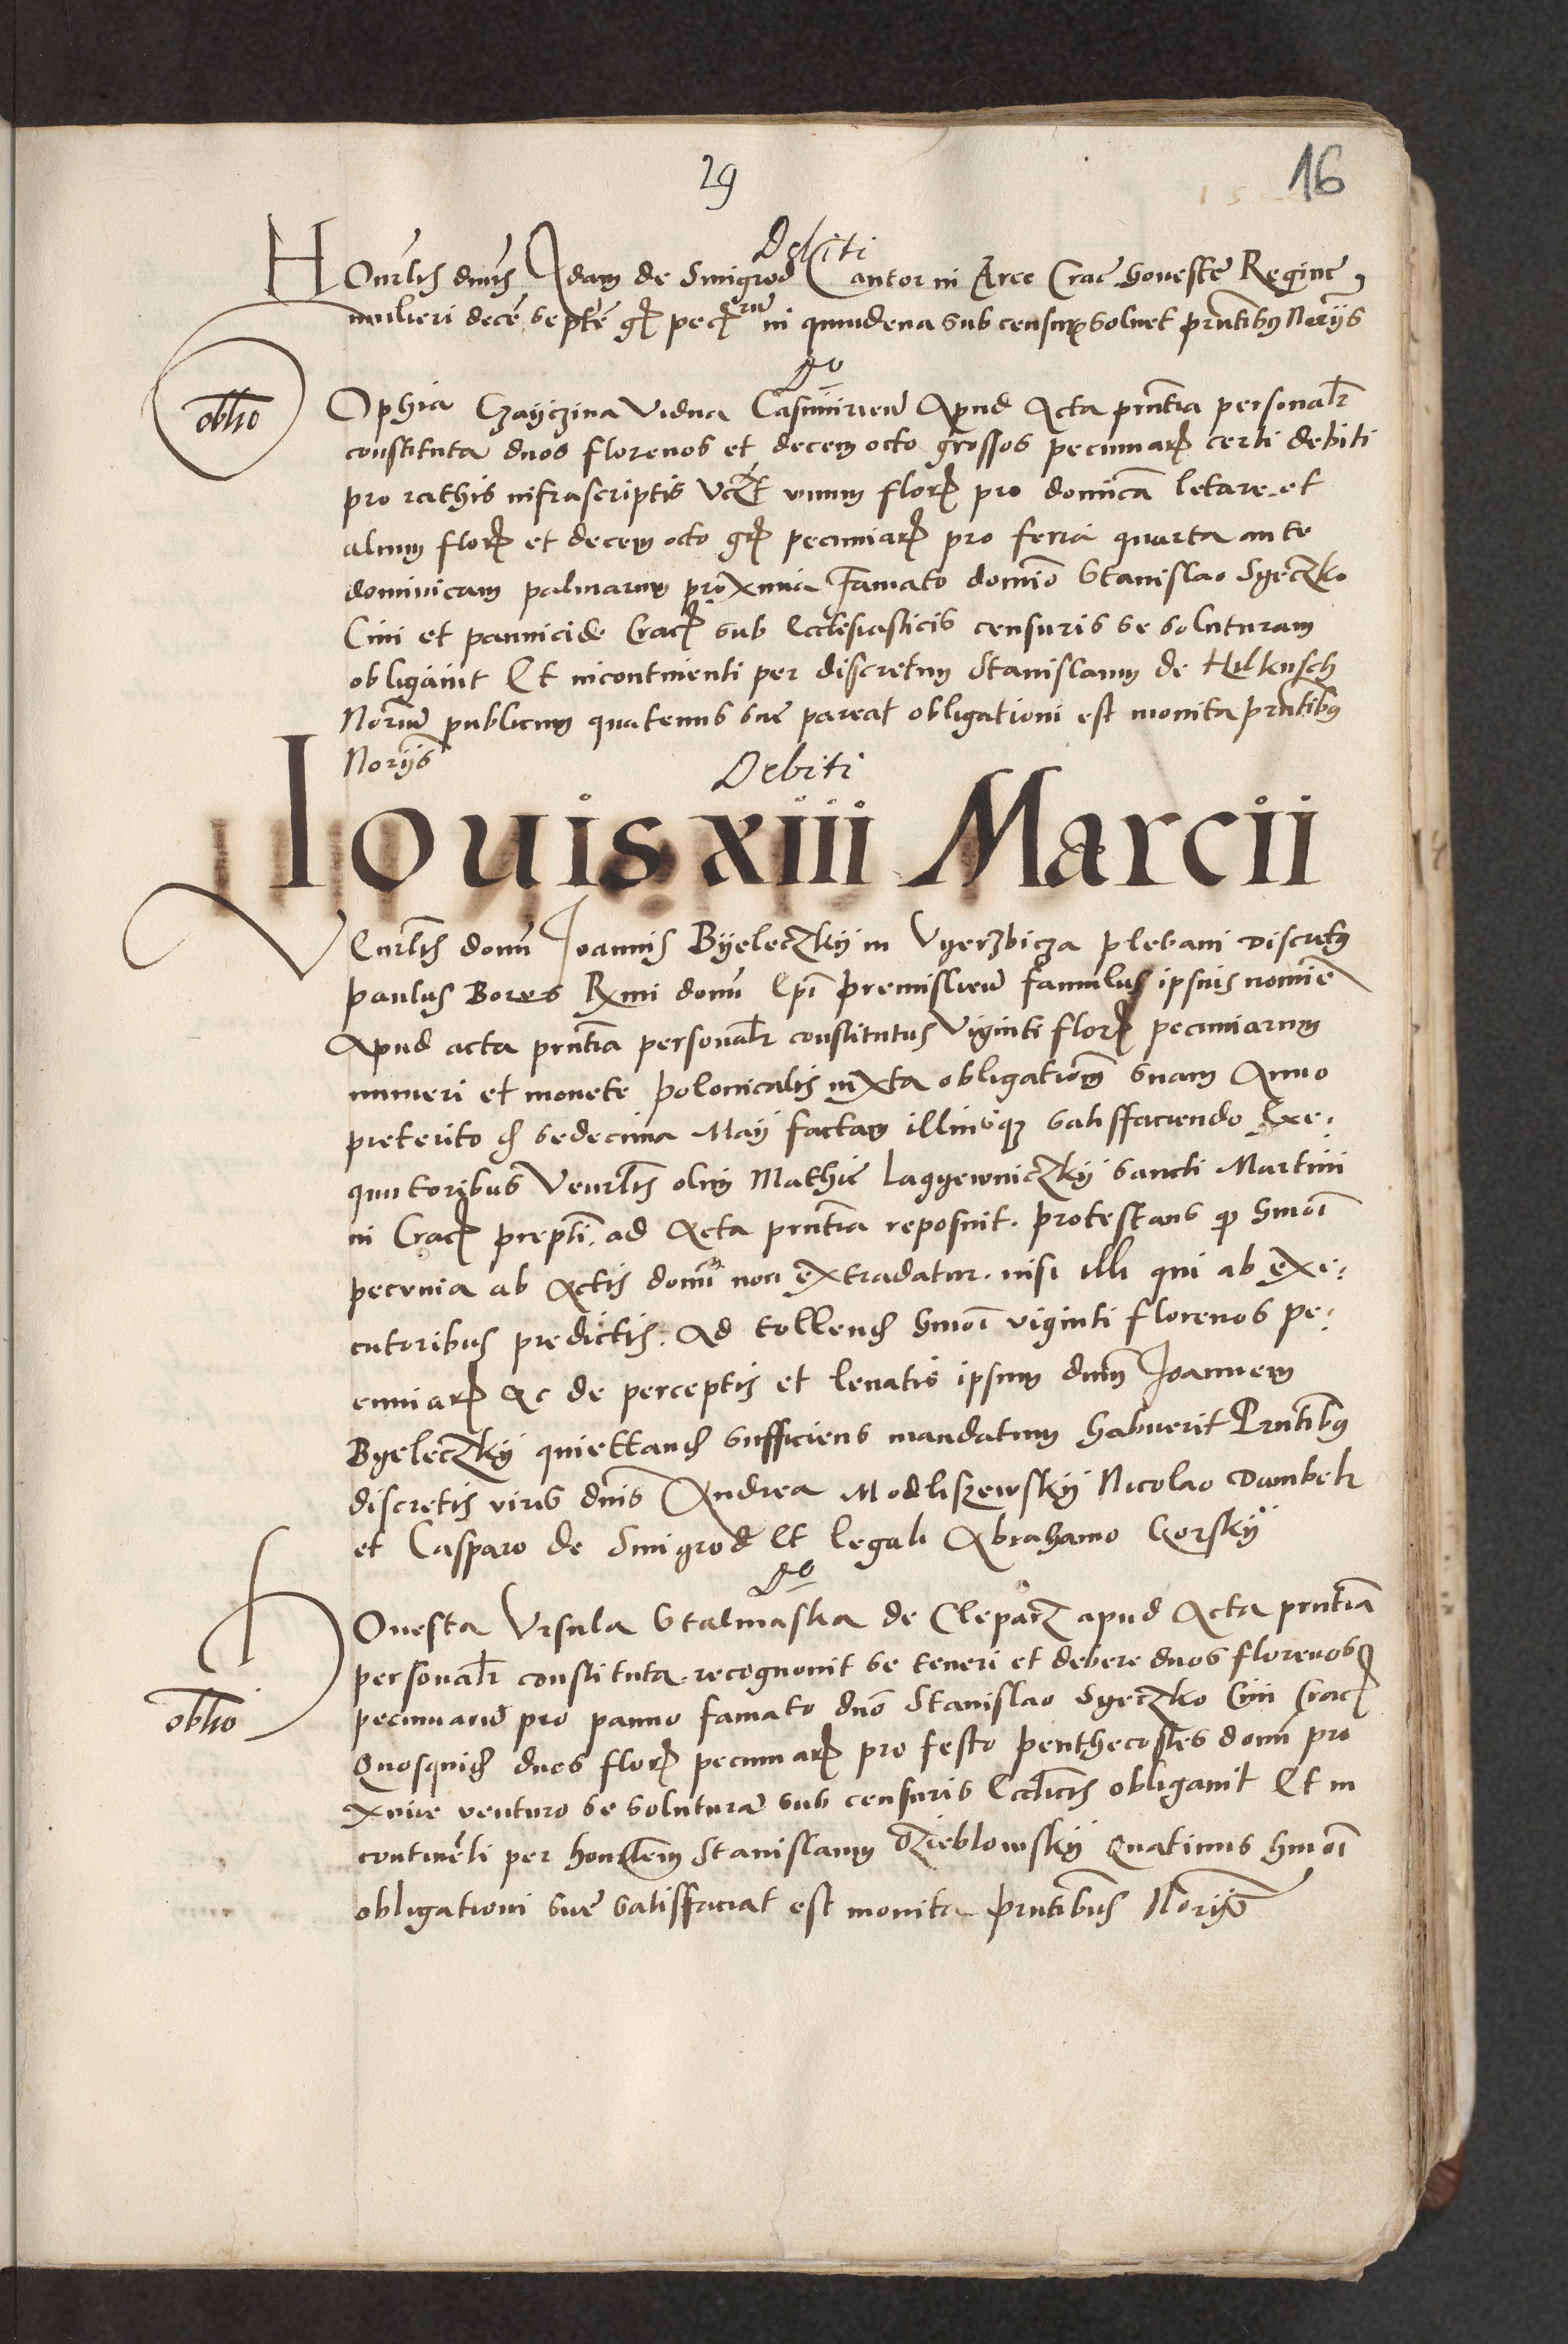 29
16
Debiti
Honrlis dnus Adam de Smigrod Cantor in Arce Crac honeste Regine
mulieri decē septē gr pecrum in quindena sub censur soluet prntibus Norijs
Do
oblio
Sophia Czayczina Vidua Casimirien Apud Acta prntia personalr
constituta duos florenos et decem octo grossos pecuniar certi debiti
pro rathis infrascriptis Vczt vnum flor pro dominica letare et
alium flor et decem octo gr pecuniar pro feria quarta ante
dominicam palmarum proxima famato domino Stanislao Sgeczko
Ciui et pannicide Crac sub Ecclesiasticis censuris se soluturam
obligauit Et incontinenti per discretum Stanislaum de Hilkusch
Norium publicum quatenus sue pareat obligationi est monita prntibus
Norijs
Debiti
Iouis xiii Marcii
Venrlis domi Joannis Byeleczky in Vyerzbicza plebani discretus
paulus Bores Rxmi domi Epi premislien famulus ipsius nomine
Apud acta prntia personalr constitutus Viginti flor pecuniarum
numeri et monete polonicalis iuxta obligationem suam Anno
preterito d sedecima Maij factam illiusque satisfaciendo Exe:
quutoribus Venrlis olim Mathie Lagyewniczky sancti Martini
in Crac prepti ad Acta prntia reposuit. protestans quod hmoi
pecunia ab Actis domi non extradatur. nisi illi qui ab exe:
cutoribus predictis. Ad tollend hmoi viginti florenos pe:
cuniar Ac de perceptis et leuatis ipsum dnum Joannem
Byeleczky quiettand sufficiens mandatum habuerit Prntibus
discretis viris dnis Andrea Modliszewsky Nicolao Dambek
et Casparo de Smigrod Et legali Abrahamo Gorsky
Do
oblio
Honesta Vrsula Stalmaska de Cleparz apud Acta prntia
personalr constituta recognouit se teneri et debere duos florenos
pecuniarum pro panno famato dno Stanislao Sgeczko Ciui Crac
Quosquid duos flor pecuniar pro festo penthecostes domi pro
xime venturo se soluturam sub censuris Ecclicis obligauit Et in
continenti per honrlem Stanislaum Dzieblowsky Quatinus hmoi
obligationi sue satisfaciat est monita prntibus Norijs